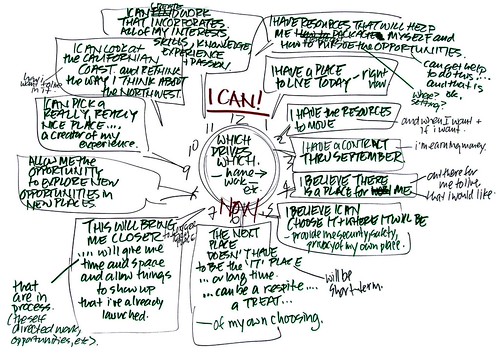 I CAN WORK
CREATE
THAT INCORPORATES
ALL OF MY INTERESTS
SKILLS, KNOWLEDGE
EXPERIENCE
+ PASSION.
I HAVE RESOURCES THAT WILL HELP
ME PACKAGE MYSELF AND
HOW TO PURSUE THE OPPORTUNITIES.
can get help
to do this ....
and that is
where? etc.
setting?
I HAVE A PLACE
TO LIVE TODAY - right
now
I HAVE THE RESOURCES
TO MOVE
and when I want +
if i want.
I HAVE A CONTRACT
THRU SEPTEMBER.
i'm earning money.
I BELIEVE THERE
IS A PLACE FOR ME
out there for
me to live
that I would like.
I BELIEVE I CAN
CHOOSE IT WHERE IT WILL BE
provide me security, safety,
privacy of my own place.
THE NEXT
PLACE
DOESN'T HAVE
TO BE THE 'IT' PLACE
... or long time.
... can be a respite....
A TREAT...
of my own choosing.
will be
short-term.
THIS WILL BRING
ME CLOSER
.... will give me
time and space
and allow things
to show up
that i've already
launched.
that
are in
process.
(the self
directed work,
opportunities, etc).
ALLOW ME THE
OPPORTUNITY
TO EXPLORE NEW
OPPORTUNITIES IN
NEW PLACES.
I CAN PICK A
REALLY, REALLY
NICE PLACE....
a creator of my
experience.
I CAN LOOK AT
THE CALIFORNIAN
COAST. AND RETHINK
THE WAY I THINK ABOUT
THE NORTHWEST.
I CAN!
12
2
4
5
7
9
10
11
WHICH
DRIVES
WHICH.
- home →
work -
ex
NOW.